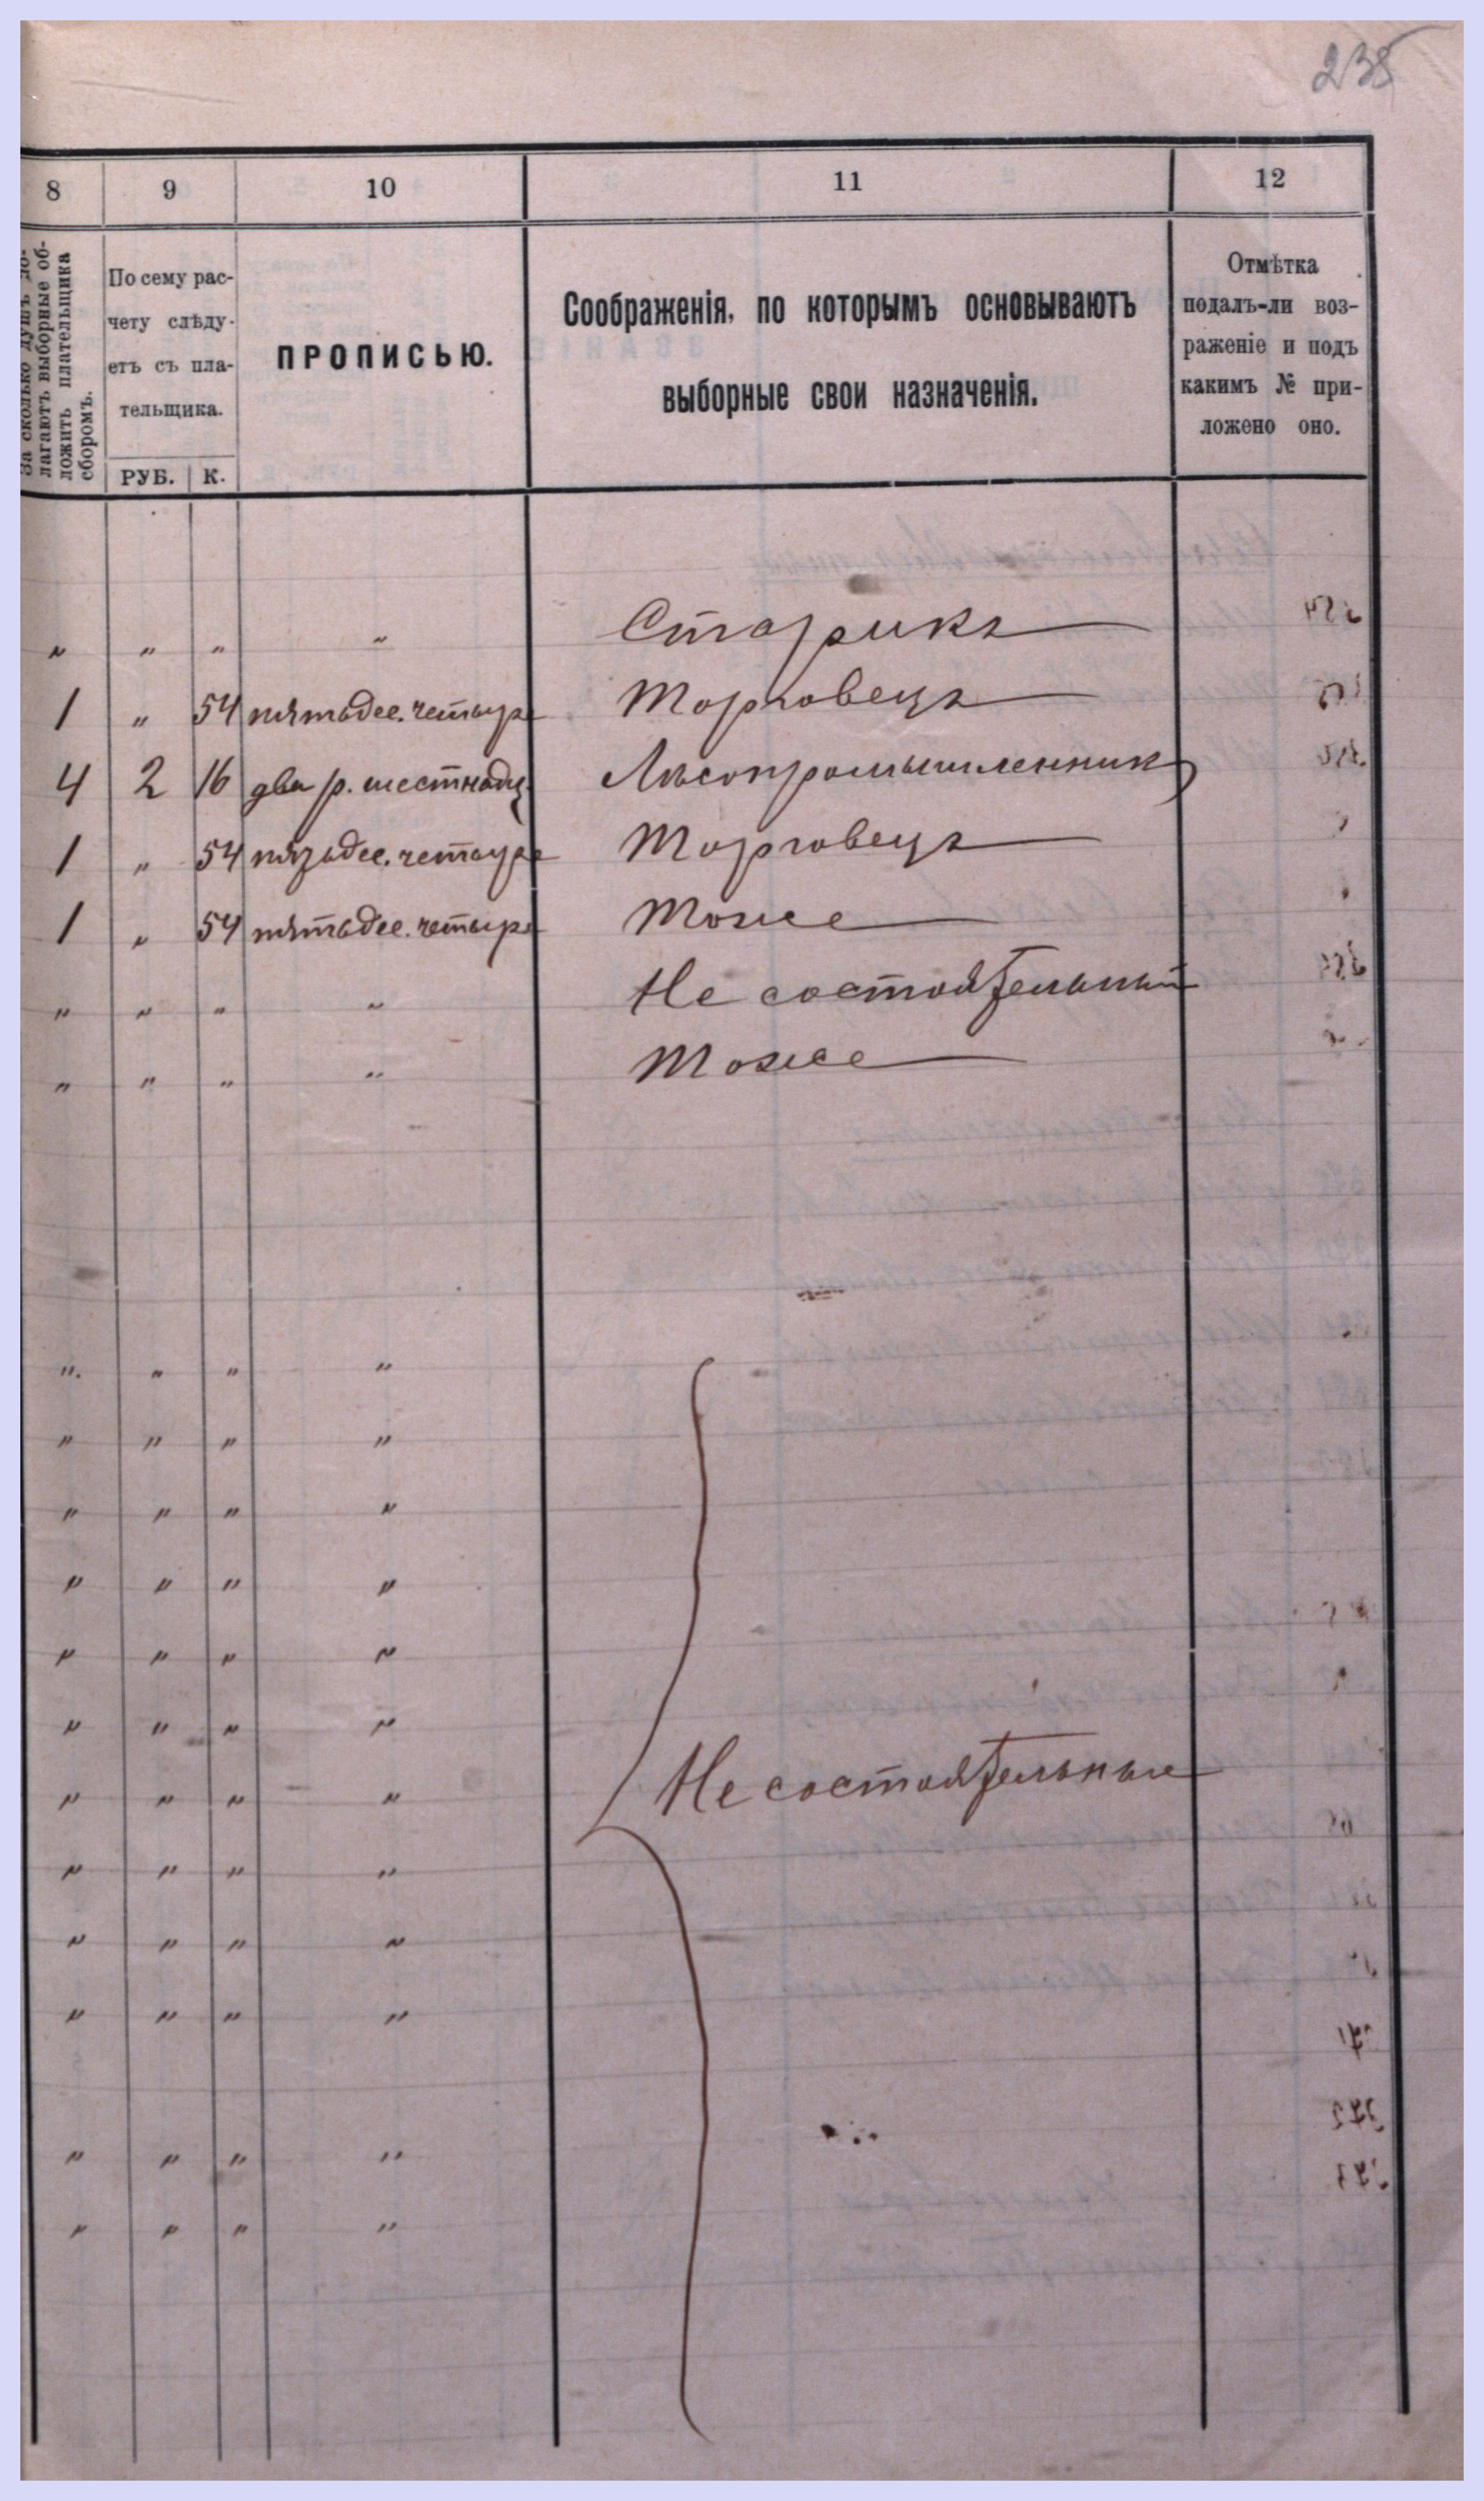 238
8 9 10 11 12
За сколько душъ по-
лагаютъ выборные об-
ложить плательщика
сборомъ.
По сему рас-
чету слѣду-
етъ съ пла-
тельщика.
РУБ. К.
ПРОПИСЬЮ.
Соображенія, по которымъ основываютъ
выборные свои назначенія.
Отмѣтка
подалъ-ли воз-
раженіе и подъ
какимъ № при-
ложено оно.
" " " " Старикъ
1 " 54 пятьдес. четыре Торговецъ
4 2 16 два р. шестнадц. Лѣсопромышленникъ
1 " 54 пятьдес. четыре Торговецъ
1 " 54 пятьдес. четыре Тоже
" " " " Не состоятельный
" " " " Тоже
" " " "
" " " "
" " " "
" " " "
" " " "
" " " "
" " " " Не состоятельные
" " " "
" " " "
" " " "
" " " "
" " " "